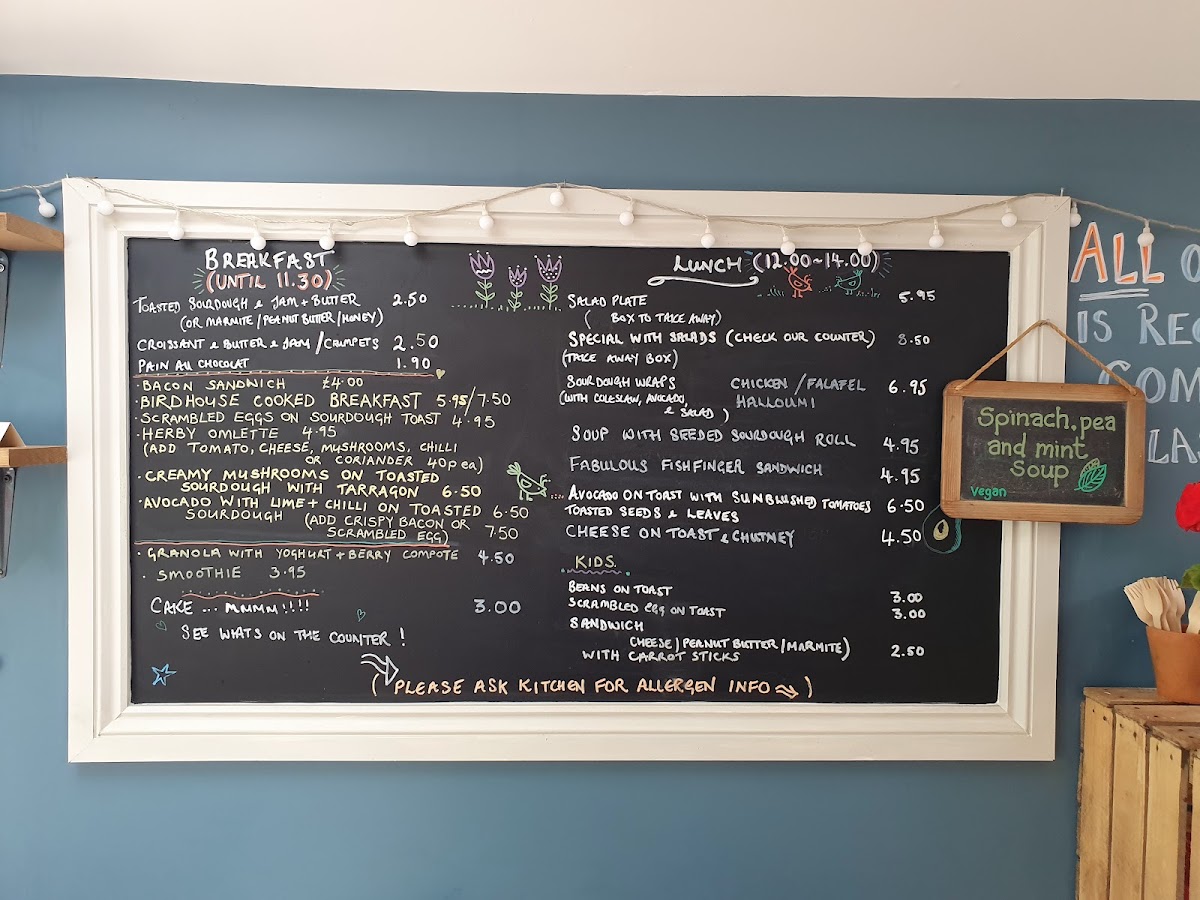 BREAKFAST
(UNTIL 11.30)
TOASTED SOURDOUGH & JAM + BUTTER 2.50
(OR MARMITE/PEANUT BUTTER/HONEY)
CROISSANT & BUTTER & JAM/CRUMPETS 2.50
PAIN AU CHOCOLAT 1.90
· BACON SANDWICH £4.00
· BIRDHOUSE COOKED BREAKFAST 5.95/7.50
· SCRAMBLED EGGS ON SOURDOUGH TOAST 4.95
· HERBY OMLETTE 4.95
(ADD TOMATO, CHEESE, MUSHROOMS, CHILLI
OR CORIANDER 40p ea)
· CREAMY MUSHROOMS ON TOASTED
SOURDOUGH WITH TARRAGON 6.50
· AVOCADO WITH LIME + CHILLI ON TOASTED 6.50
SOURDOUGH (ADD CRISPY BACON OR 7.50
SCRAMBLED EGG)
· GRANOLA WITH YOGHURT + BERRY COMPOTE 4.50
· SMOOTHIE 3.95
CAKE ... MMMM!!!! 3.00
SEE WHATS ON THE COUNTER!
LUNCH (12.00~14.00)
SALAD PLATE 5.95
(BOX TO TAKE AWAY)
SPECIAL WITH SALADS (CHECK OUR COUNTER) 8.50
(TAKE AWAY BOX)
SOURDOUGH WRAPS CHICKEN/FALAFEL 6.95
(WITH COLESLAW, AVOCADO, HALLOUMI
& SALAD)
SOUP WITH SEEDED SOURDOUGH ROLL 4.95
FABULOUS FISHFINGER SANDWICH 4.95
AVOCADO ON TOAST WITH SUNBLUSHED TOMATOES 6.50
TOASTED SEEDS & LEAVES
CHEESE ON TOAST & CHUTNEY 4.50
KIDS.
BEANS ON TOAST 3.00
SCRAMBLED EGG ON TOAST 3.00
SANDWICH
CHEESE/PEANUT BUTTER/MARMITE) 2.50
WITH CARROT STICKS
(PLEASE ASK KITCHEN FOR ALLERGEN INFO)
Spinach, pea
and mint
soup
vegan
ALL O
IS REC
COM
LA